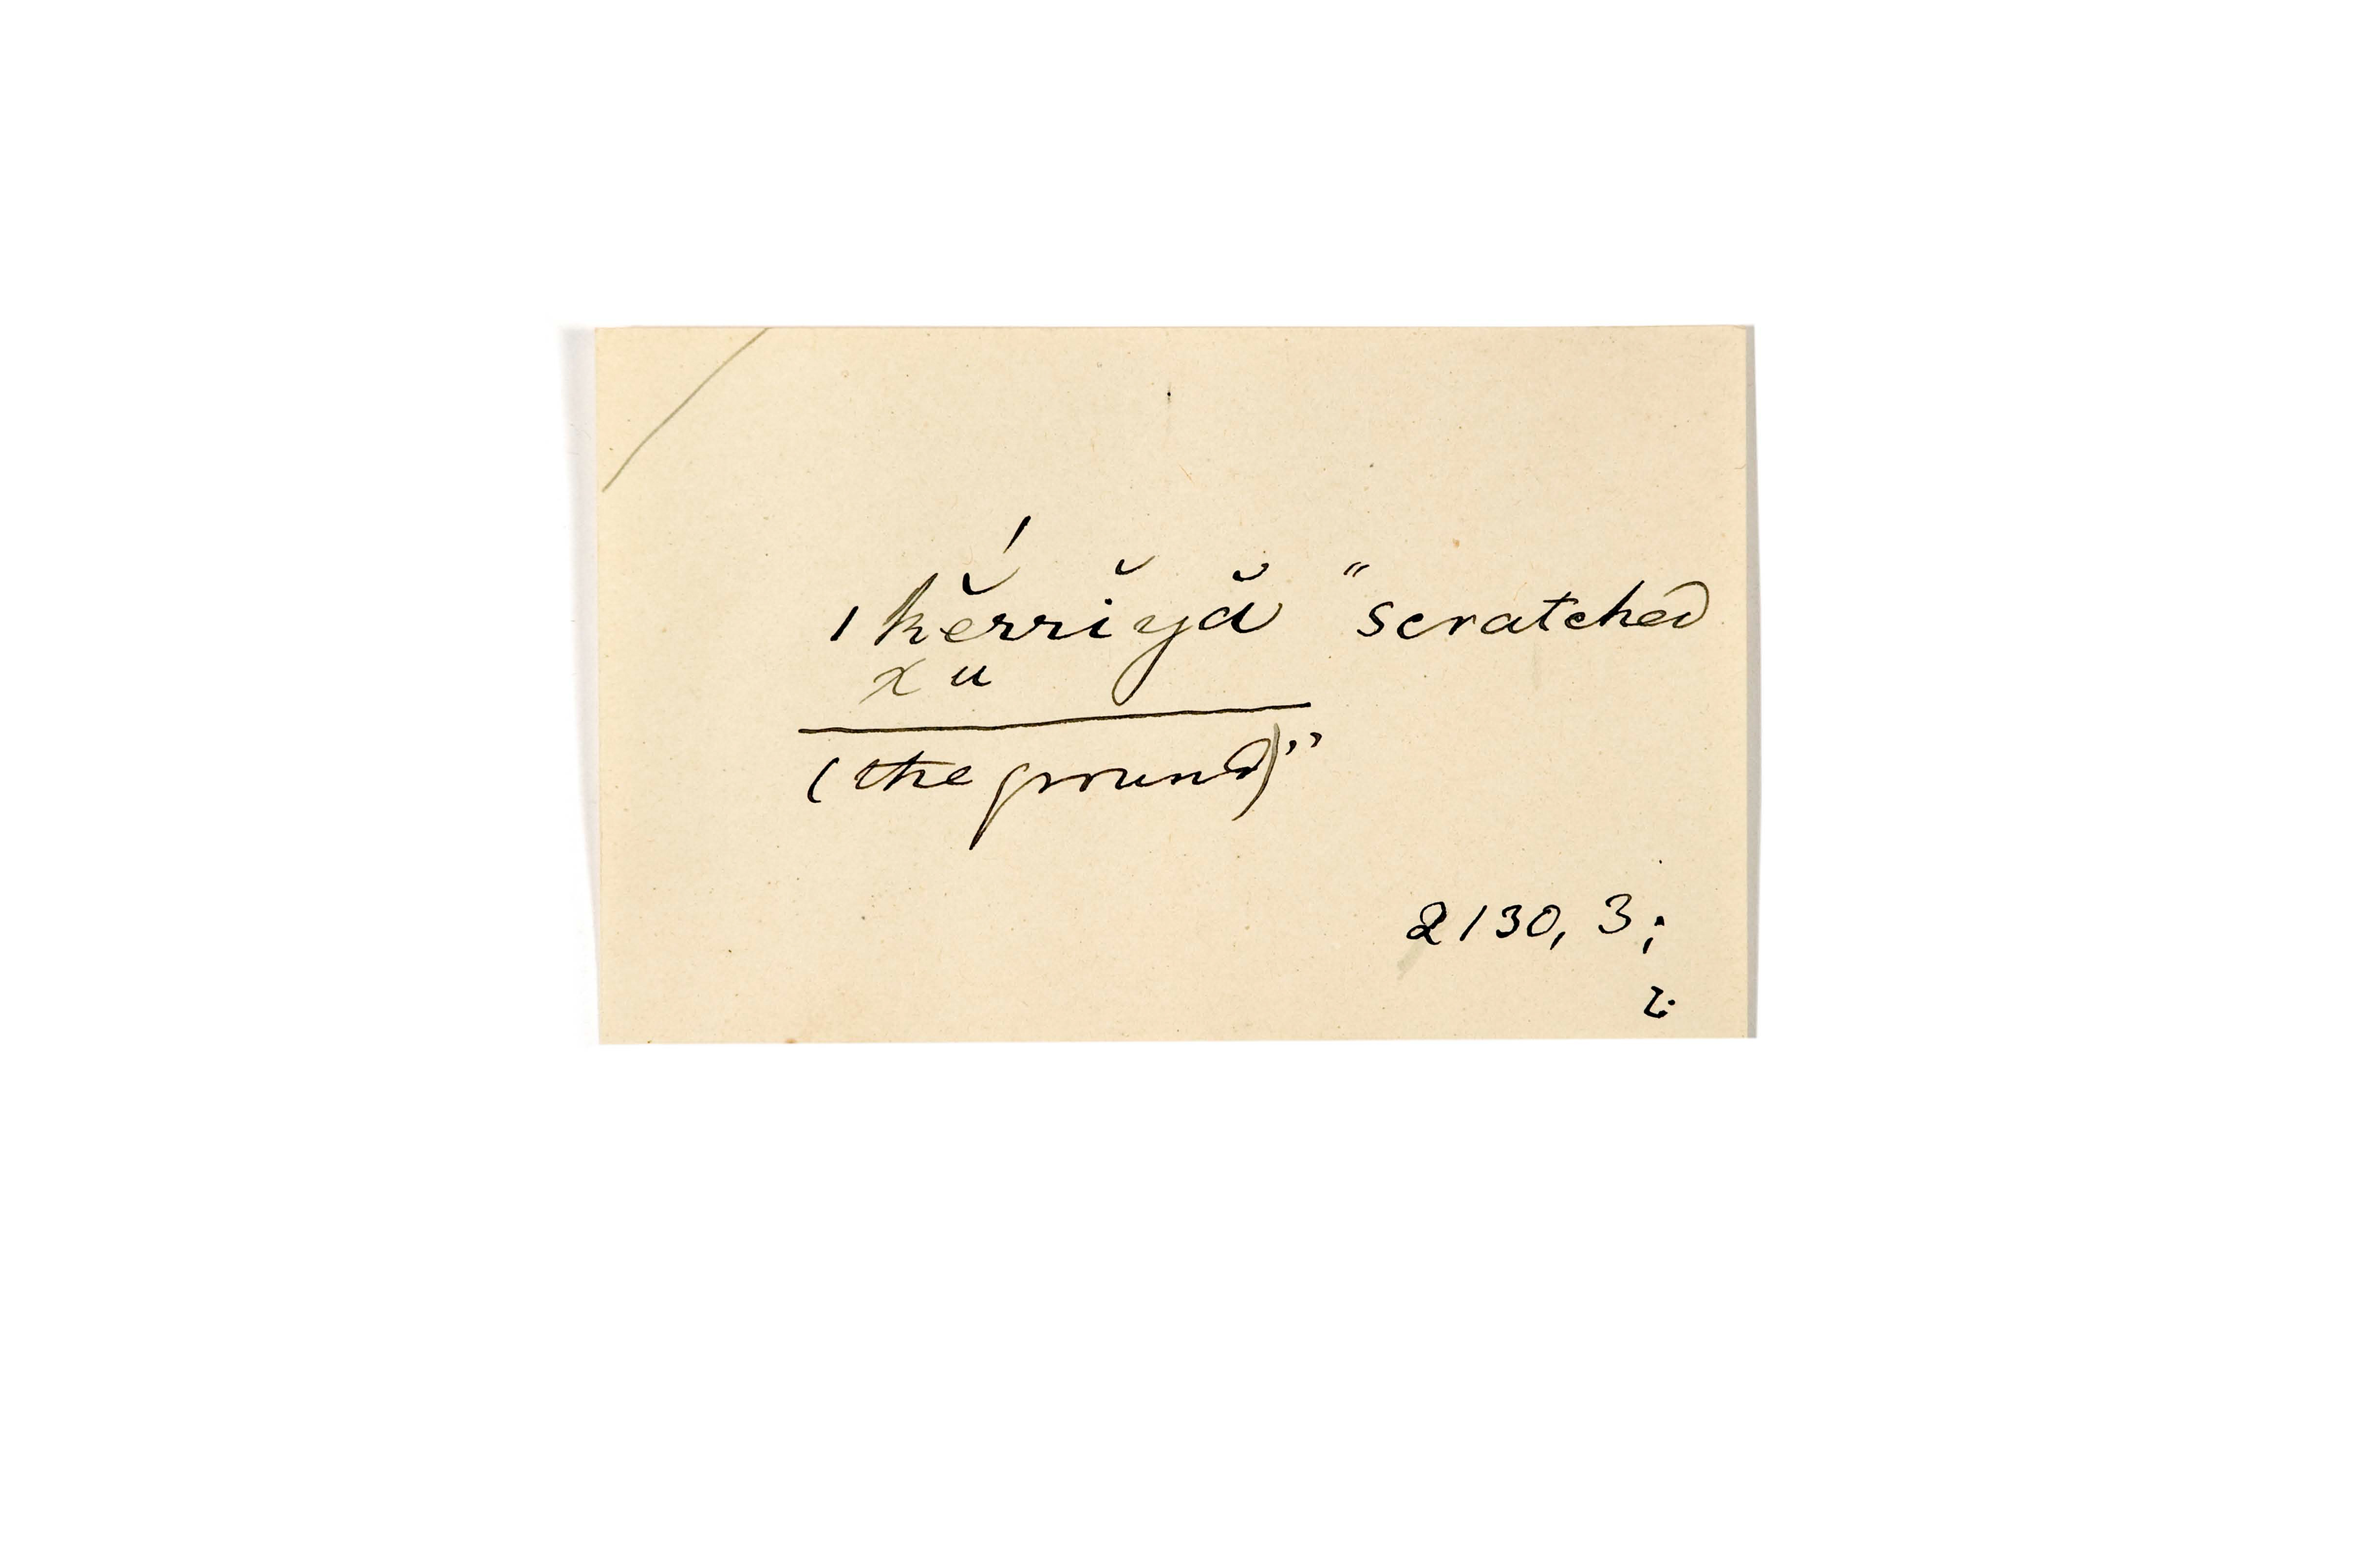 ı kĕ́rrĭyă "scratched
x u
(the ground)"
2130, 3;